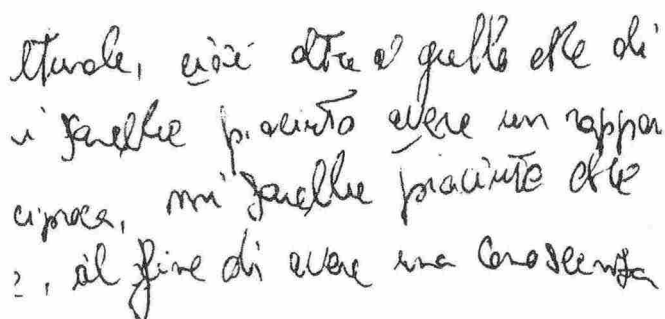 tturale, cioè oltre a quello che di
i sarebbe piaciuto avere un rappor
ciproca, mi sarebbe piaciuto che
e, al fine di avere una conoscenza